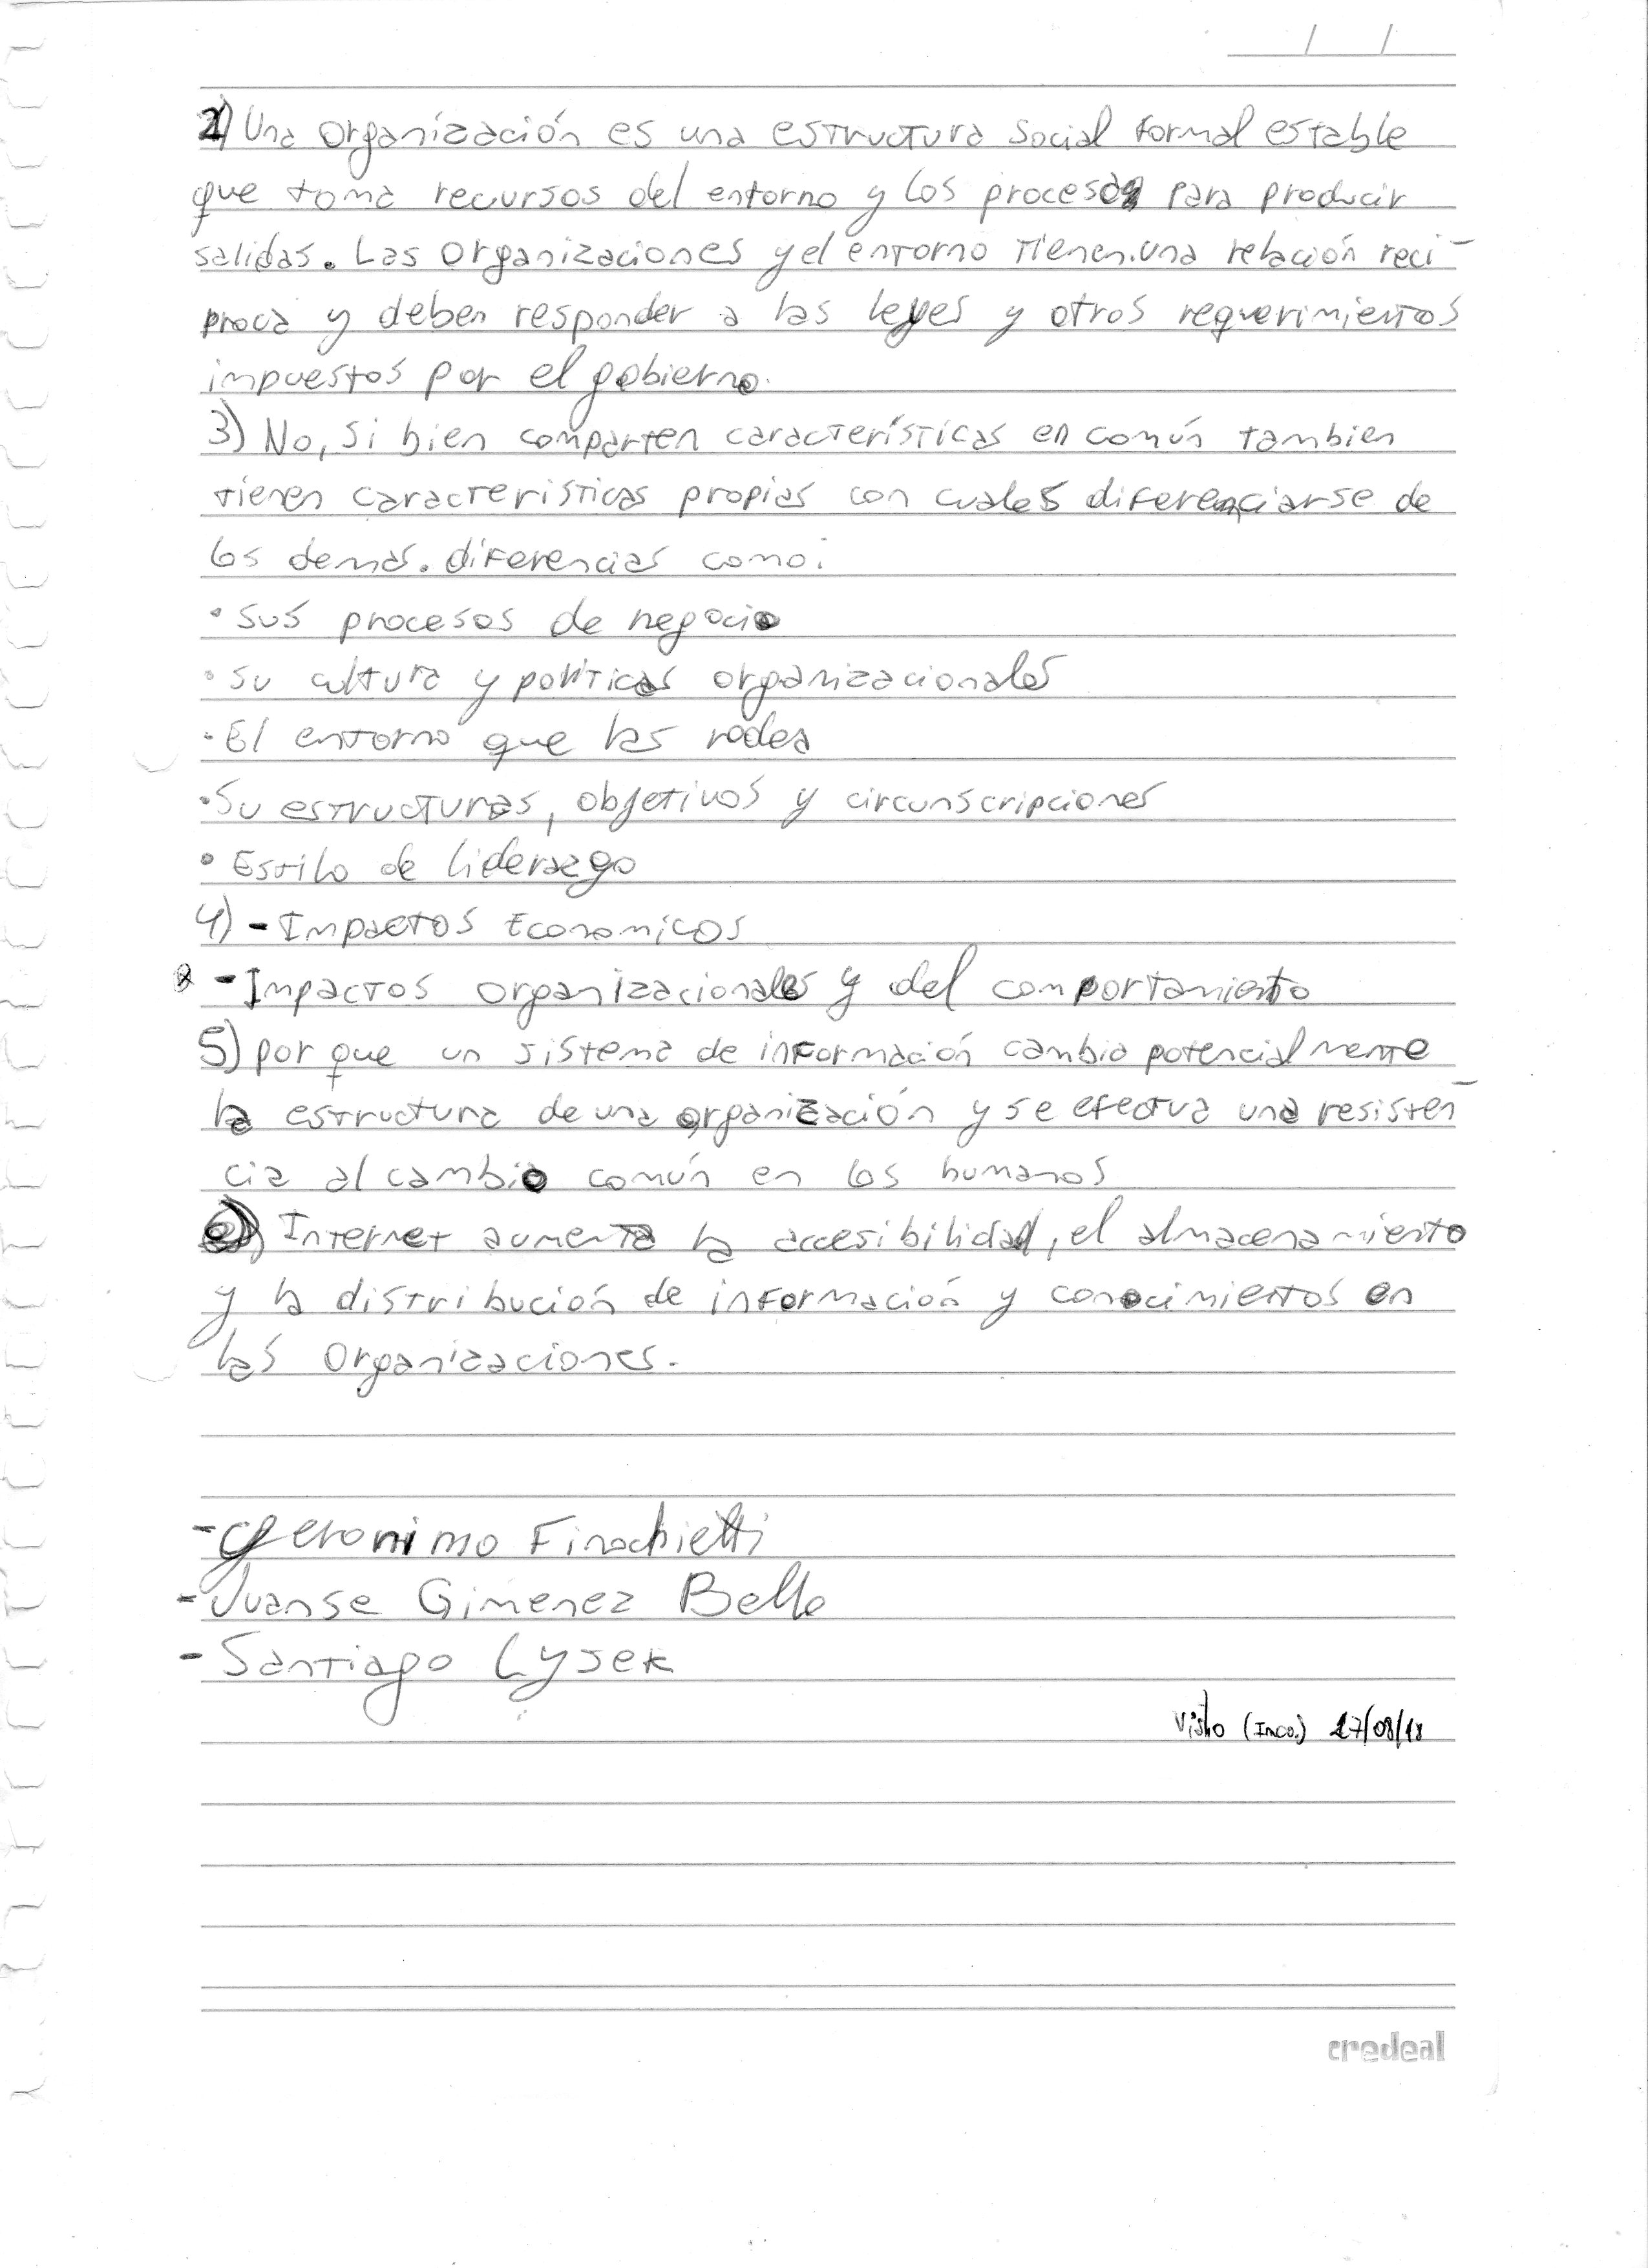 / /
1) Una organización es una estructura social formal estable
que toma recursos del entorno y los procesa para producir
salidas. Las organizaciones y el entorno tienen una relación reci-
proca y deben responder a las leyes y otros requerimientos
impuestos por el gobierno.
3) No, si bien comparten características en común tambien
tienen caracteristicas propias con cuales diferenciarse de
los demás. diferencias como:
• Sus procesos de negocio
• Su cultura y políticas organizacionales
• El entorno que las rodea
• Su estructuras, objetivos y circunscripciones
• Estilo de liderazgo
4) - Impactos Economicos
- Impactos organizacionales y del comportamiento
5) por que un sistema de información cambia potencialmente
la estructura de una organización y se efectua una resisten-
cia al cambio común en los humanos
Internet aumenta la accesibilidad, el almacenamiento
y la distribución de información y conocimientos en
las organizaciones.
- Geronimo Finochietti
- Juanse Gimenez Bello
- Santiago Lysek
Visto (Inco.) 27/08/18
credeal